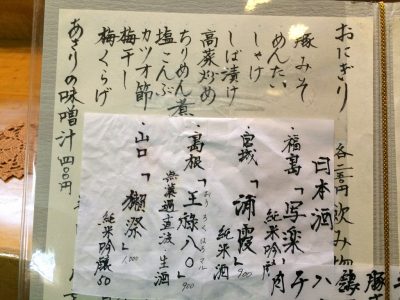 おにぎり 各二〇〇円
豚みそ
めんたい
しゃけ
しば漬け
高菜炒め
ちりめん煮
塩こんぶ
カツオ節
梅干し
梅くらげ
あさりの味噌汁 四〇〇円
日本酒
・福島「写楽」
純米吟醸
・宮城「浦霞」
純米酒 900
・島根「王祿八〇」
おうろくはちまる
無濾過直汲 生酒 900
・山口「獺祭」
純米吟醸50 1,000
飲み
豚
醸
ハチ
肉